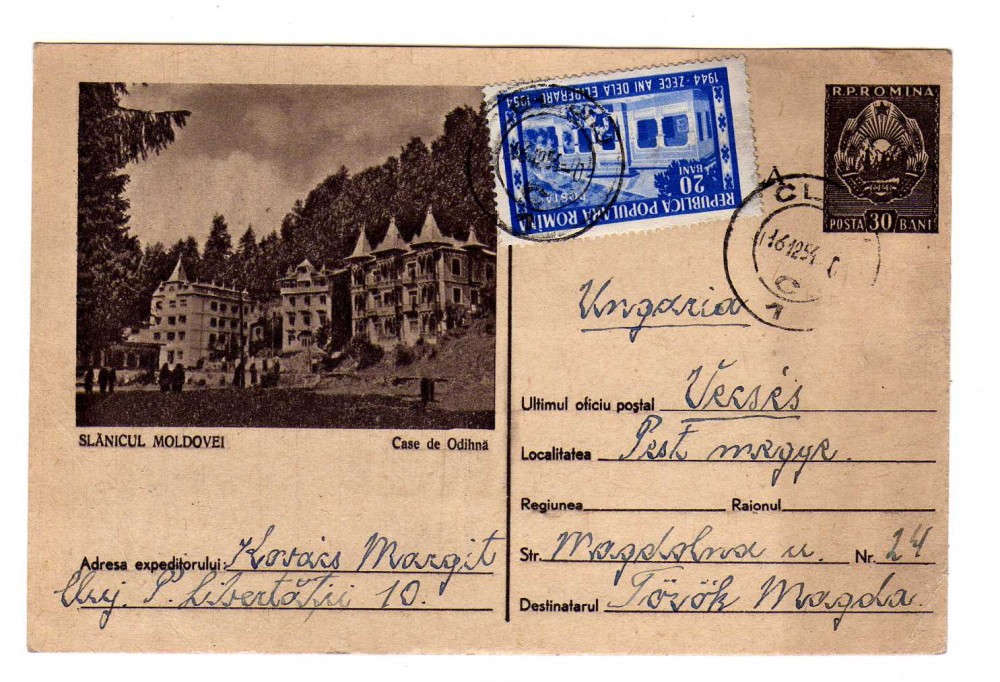 SLĂNICUL MOLDOVEI Case de Odihnă
Adresa expeditorului: Kovács Margit
Cluj. P. Libertății 10.
1944 - ZECE ANI DELA ELIBERARE - 1954
20 BANI
POSTA
REPUBLICA POPULARA ROMÎNA
R.P.ROMINA
POSTA 30 BANI
CL
16.12.54
1
Ungaria
Ultimul oficiu poștal Vecsés
Localitatea Pest megye
Regiunea Raionul
Str. Magdolna u. Nr. 24
Destinatarul Török Magda.